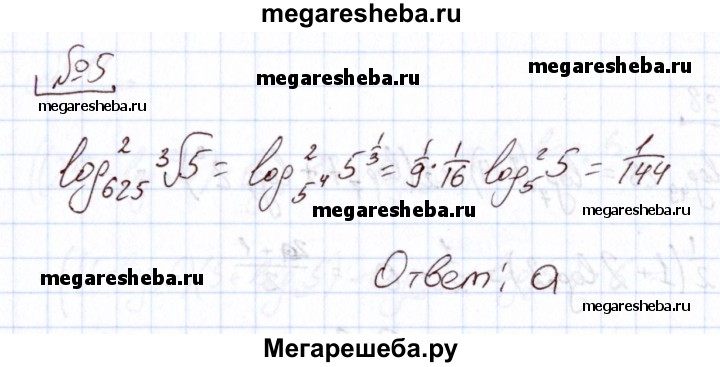 megaresheba.ru
№5
megaresheba.ru
megaresheba.ru
megaresheba.ru
log²₆₂₅ ³√5 = log²₅⁴ 5^(1/3) = 1/9 · 1/16 log²₅ 5 = 1/144
megaresheba.ru
megaresheba.ru
megaresheba.ru
Ответ: а
megaresheba.ru
Мегарешеба.ру